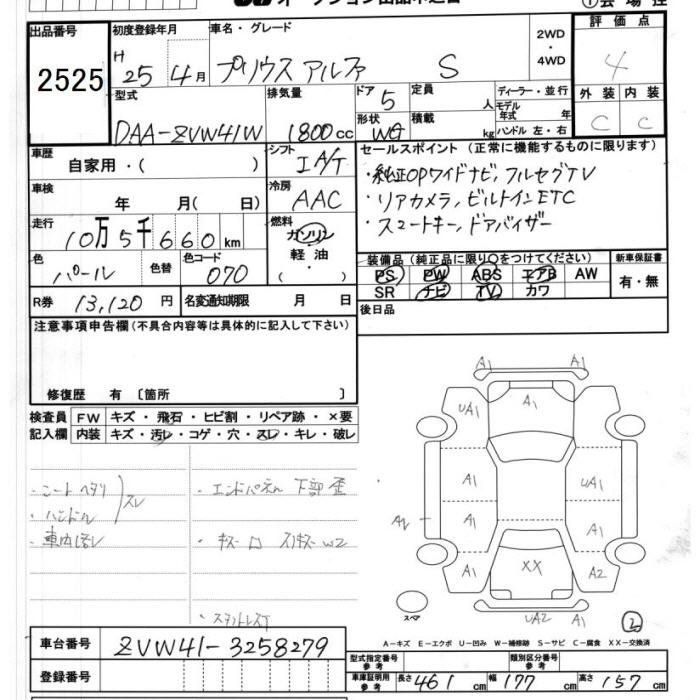 出品番号
2525
初度登録年月
H
25 4月
車名・グレード
プリウス アルファ S
2WD
・
4WD
評価点
4
型式
DAA-ZVW41W
排気量
1800cc
ドア 5
形状 WG
定員 人
積載 kg
ディーラー・並行
モデル
年式 年
ハンドル 左・右
外装 内装
C C
車歴
自家用・( )
シフト
IA/T
セールスポイント (正常に機能するものに限ります)
・純正OPワイドナビ,フルセグTV
・リアカメラ,ビルトインETC
・スマートキー,ドアバイザー
車検
年 月( 日)
冷房
AAC
走行
10万5千660km
燃料
ガソリン
・
軽油
・
( )
色
パール
色替
色コード
070
装備品 (純正品に限り〇をつけてください)
PS PW ABS エアB AW
SR ナビ TV カワ
新車保証書
有・無
R券 13,120円
名変通知期限 月 日
後日品
注意事項申告欄(不具合内容等は具体的に記入して下さい)
修復歴 有 〔箇所 〕
検査員
記入欄
FW キズ・飛石・ヒビ割・リペア跡・×要
内装 キズ・汚レ・コゲ・穴・スレ・キレ・破レ
・シートヘタリ
・ハンドル
スレ
・車内汚レ
・エンドパネル 下部 歪
・スタッドレス
A1 A1
UA1 A1 A1
A1 UA1
A2 A1 A1
A1 XX A2
UA2 A1
スペア
2
A-キズ E-エクボ U-凹み W-補修跡 S-サビ C-腐食 XX-交換済
車台番号 ZVW41-3258279
登録番号
型式指定番号
参考
類別区分番号
参考
車庫証明用
参考
長さ 461 cm 幅 177 cm 高さ 157 cm